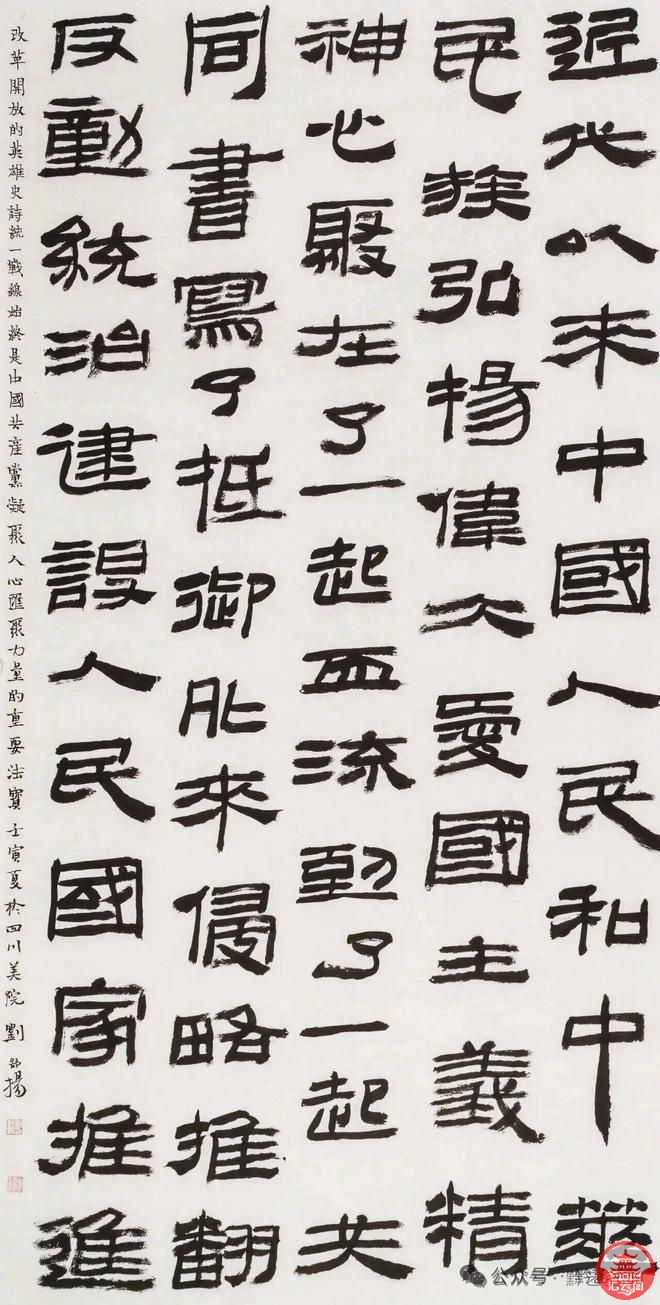 近代以來中國人民和中華
民族弘揚偉大愛國主義精
神心聚在了一起血流到了一起共
同書寫了抵御外來侵略推翻
反動統治建設人民國家推進
改革開放的英雄史詩統一戰線始終是中國共產黨凝聚人心匯聚力量的重要法寶壬寅夏於四川美院劉揚
公众号